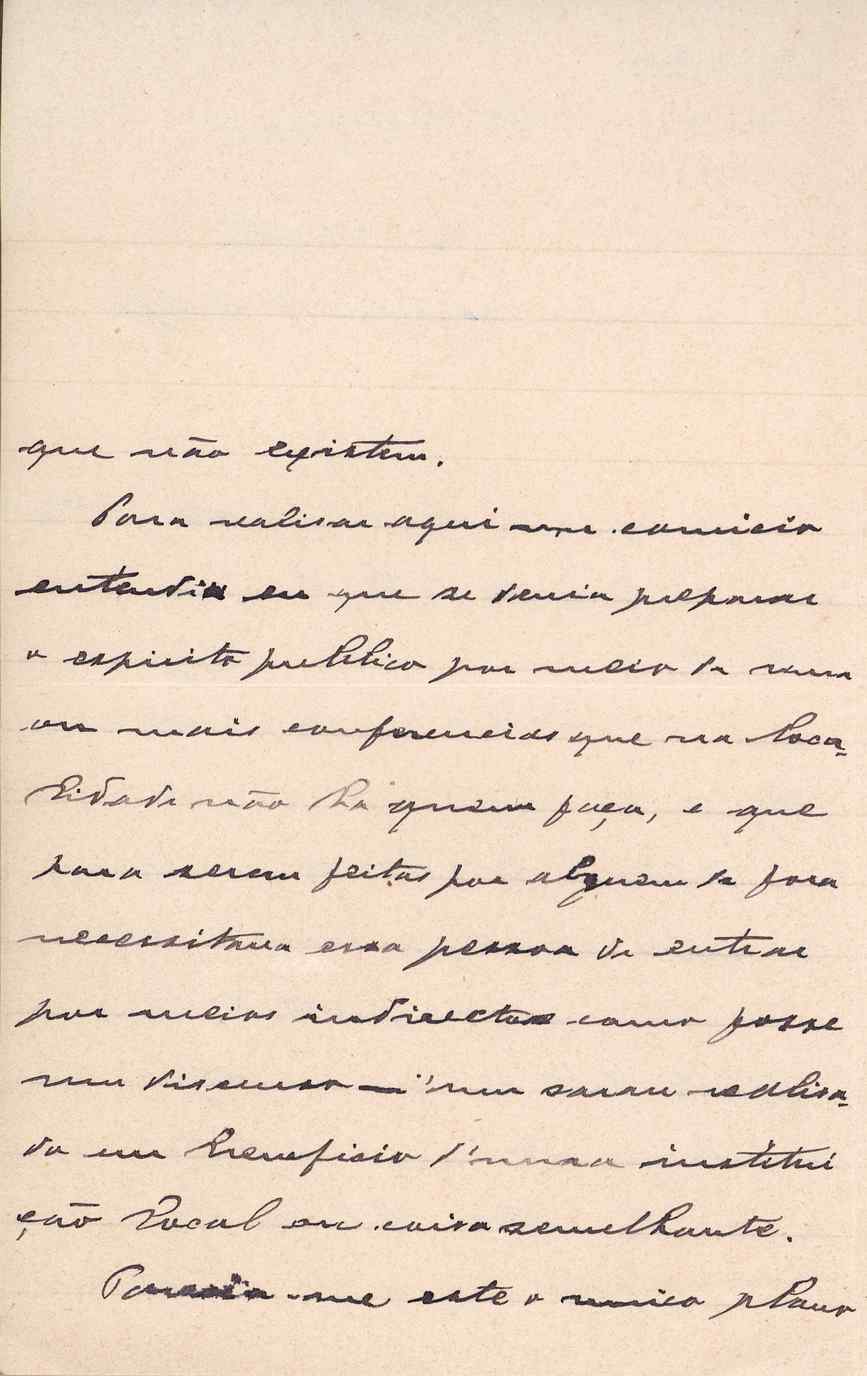 que não existem.
Para realisar aqui um comicio
entendia eu que se devia preparar
o espirito publico por meio de uma
ou mais conferencias que na loca-
lidade não ha quem faça, e que
para serem feitas por alguem de fora
necessitava essa pessoa de entrar
por meios indirectos como fosse
um discurso n'um sarau realisa-
do em beneficio d'uma institui
ção local ou coisa semelhante.
Parecia-me este o unico plano